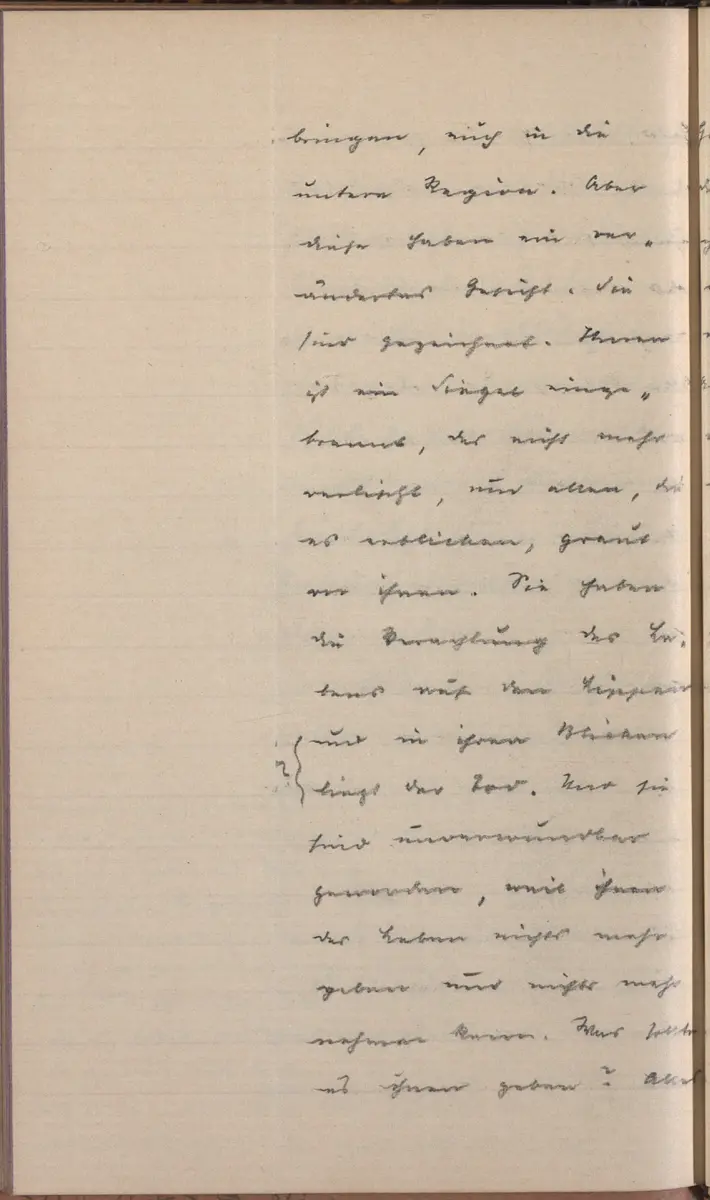 bringen, auch in die
untere Region. Aber
diese haben ein ver„
ändertes Gesicht. Sie
sind gezeichnet. Ihnen
ist ein Siegel einge„
brannt, das nicht mehr
verlischt, und allen, die
es erblicken, graut
vor ihnen. Sie haben
die Verachtung des Le„
bens auf den Lippen
und in ihren Blicken
? liegt der Tod. Und sie
sind unverwundbar
geworden, weil ihnen
das Leben nichts mehr
geben und nichts mehr
nehmen kann. Was sollte
es ihnen geben? Alles